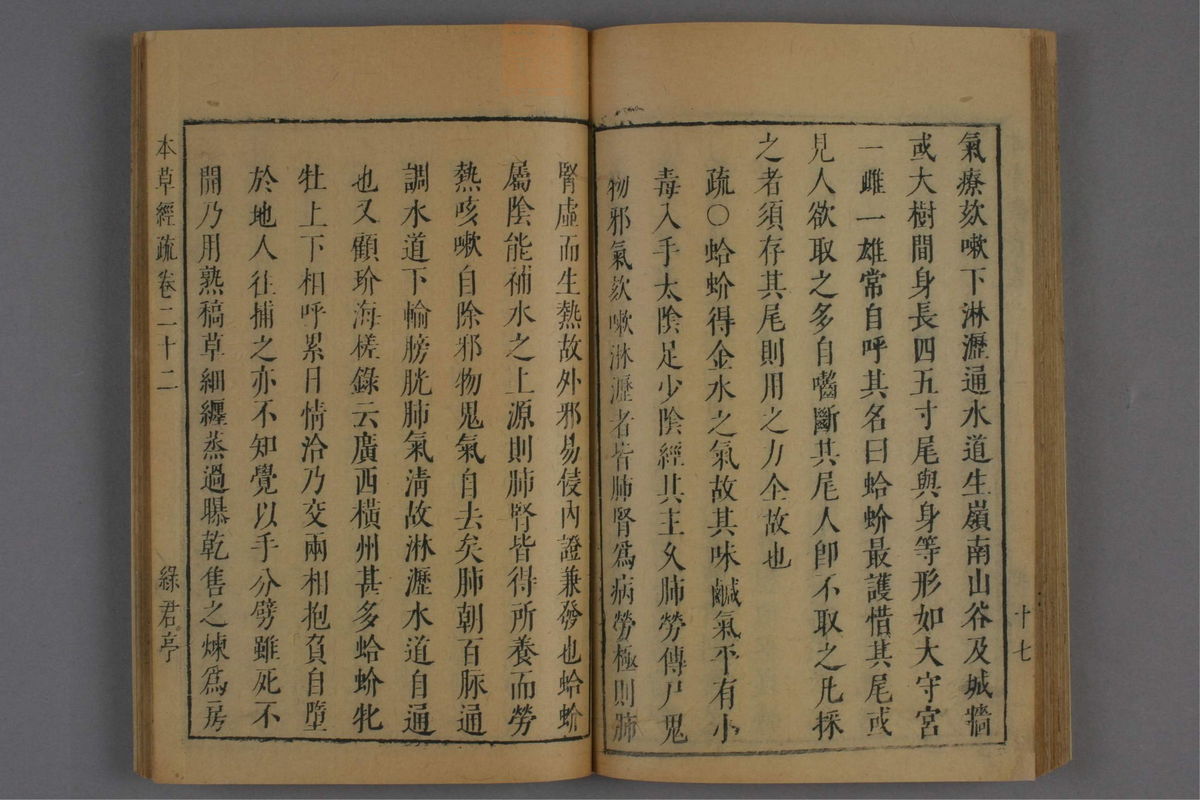 氣療欬嗽下淋瀝通水道生嶺南山谷及城牆
或大樹間身長四五寸尾與身等形如大守宮
一雌一雄常自呼其名曰蛤蚧最護惜其尾或
見人欲取之多自嚙斷其尾人卽不取之凡採
之者須存其尾則用之力全故也
疏○蛤蚧得金水之氣故其味鹹氣平有小
毒入手太陰足少陰經其主久肺勞傳尸鬼
物邪氣欬嗽淋瀝者皆肺腎爲病勞極則肺
十七
腎虛而生熱故外邪易侵內證兼發也蛤蚧
屬陰能補水之上源則肺腎皆得所養而勞
熱咳嗽自除邪物鬼氣自去矣肺朝百脉通
調水道下輸膀胱肺氣清故淋瀝水道自通
也又顧玠海槎錄云廣西橫州甚多蛤蚧牝
牡上下相呼累日情洽乃交兩相抱負自墮
於地人往捕之亦不知覺以手分劈雖死不
開乃用熟稿草細纏蒸過曝乾售之煉爲房
本草經疏卷二十二
綠君亭